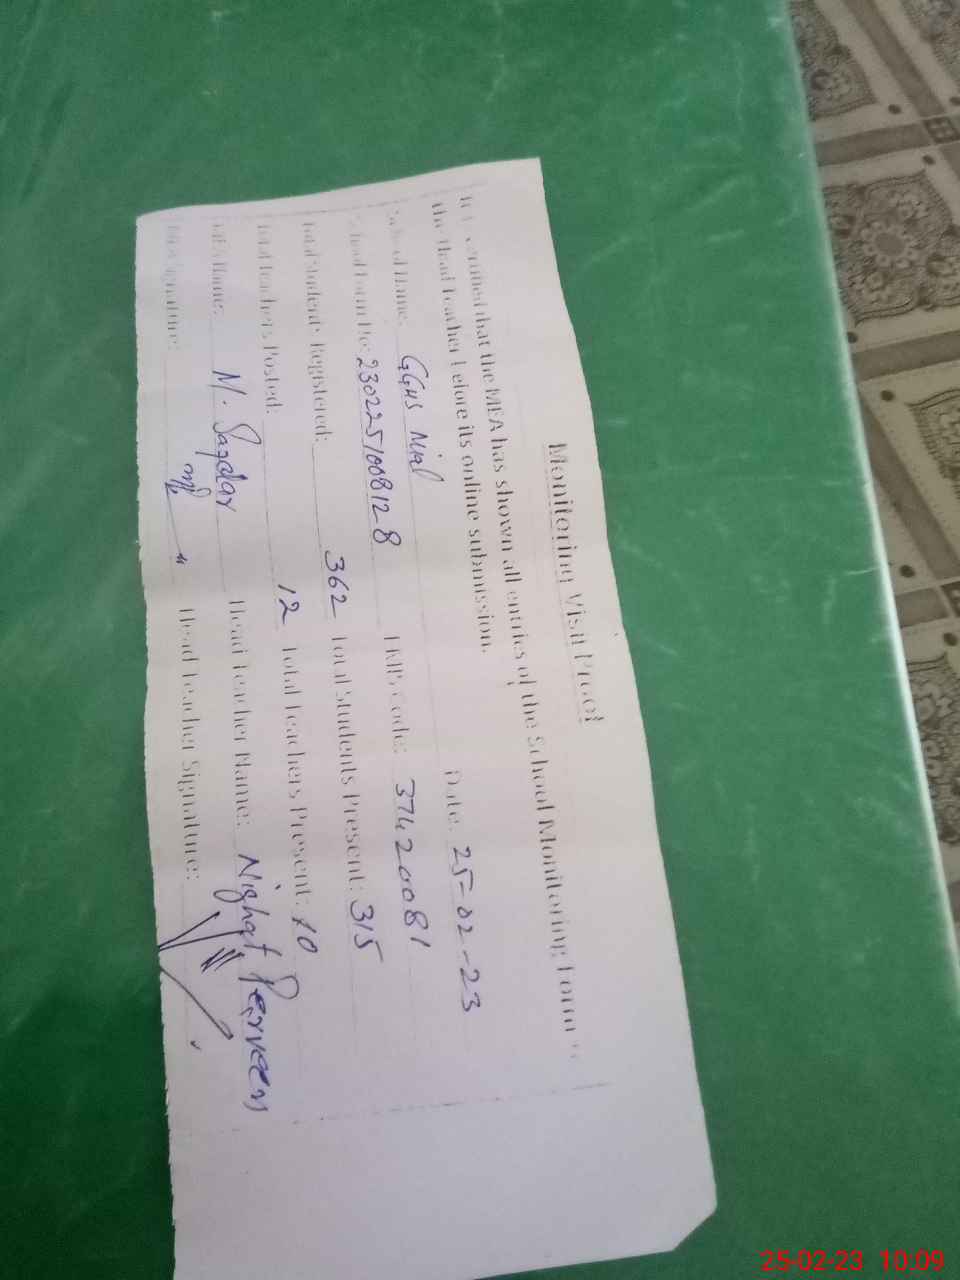 Monitoring Visit Proof
It is certified that the MEA has shown all entries of the School Monitoring Form to
the Head Teacher before its online submission.
School Name: GGHS Nial Date: 25-02-23
School Form No: 2302251008128 EMIS Code: 37420081
Total Students Registered: 362 Total Students Present: 315
Total Teachers Posted: 12 Total Teachers Present: 10
MEA Name: M. Safdar Head Teacher Name: Nighat Perveen
MEA Signature: Head Teacher Signature:
25-02-23 10:09